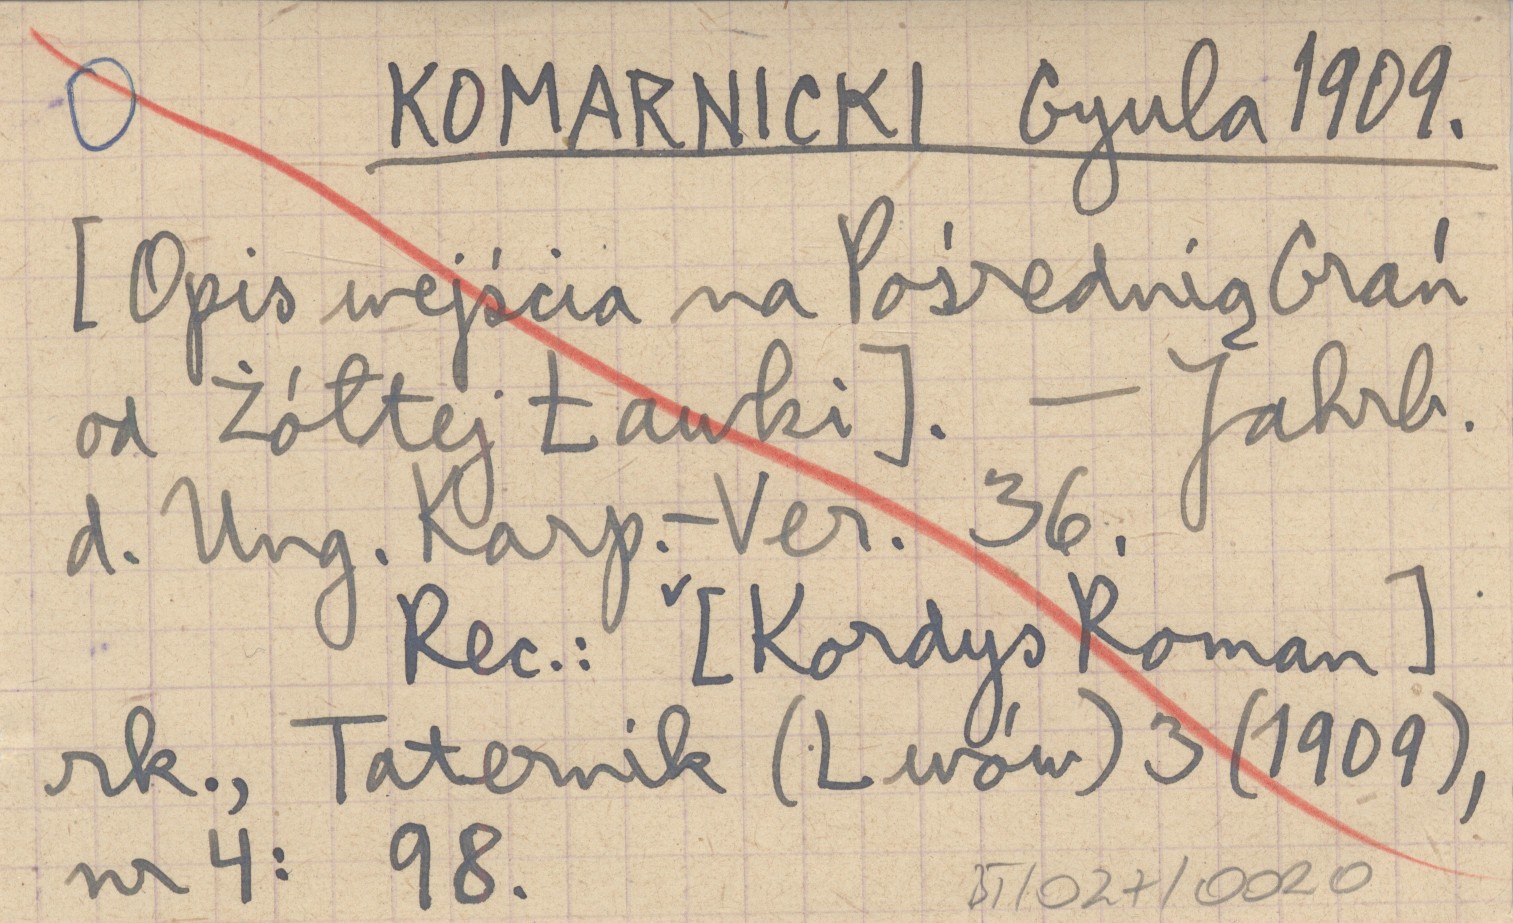 KOMARNICKI Gyula 1909.
[Opis wejścia na Pośrednią Grań
od Żółtej Ławki]. — Jahrb.
d. Ung. Karp.-Ver. 36.
Rec.: [Kordys Roman]
rk., Taternik (Lwów) 3 (1909),
nr 4: 98.
BT/027/0020